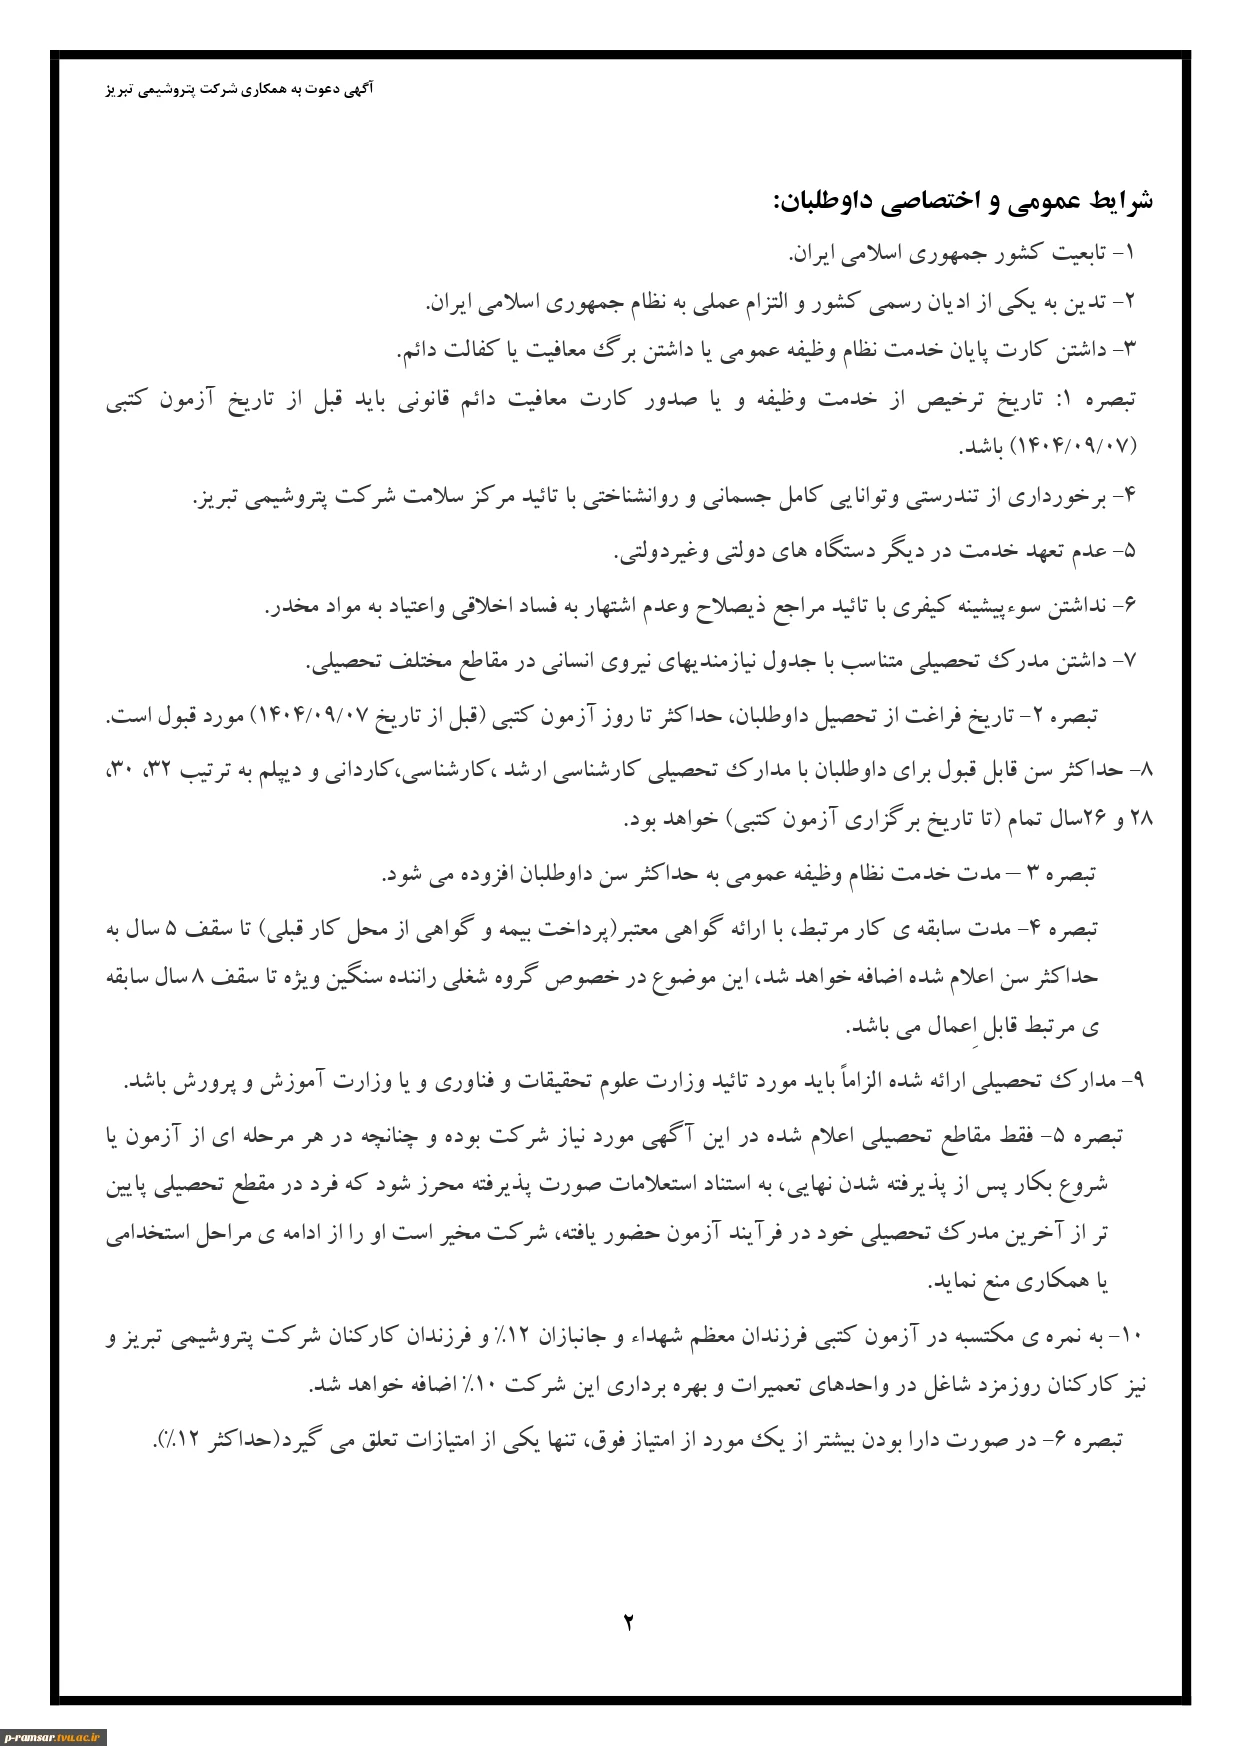 آگهی دعوت به همکاری شرکت پتروشیمی تبریز
شرایط عمومی و اختصاصی داوطلبان:
۱- تابعیت کشور جمهوری اسلامی ایران.
۲- تدین به یکی از ادیان رسمی کشور و التزام عملی به نظام جمهوری اسلامی ایران.
۳- داشتن کارت پایان خدمت نظام وظیفه عمومی یا داشتن برگ معافیت یا کفالت دائم.
تبصره ۱: تاریخ ترخیص از خدمت وظیفه و یا صدور کارت معافیت دائم قانونی باید قبل از تاریخ آزمون کتبی
(۱۴۰۴/۰۹/۰۷) باشد.
۴- برخورداری از تندرستی وتوانایی کامل جسمانی و روانشناختی با تائید مرکز سلامت شرکت پتروشیمی تبریز.
۵- عدم تعهد خدمت در دیگر دستگاه های دولتی وغیردولتی.
۶- نداشتن سوءپیشینه کیفری با تائید مراجع ذیصلاح وعدم اشتهار به فساد اخلاقی واعتیاد به مواد مخدر.
۷- داشتن مدرک تحصیلی متناسب با جدول نیازمندیهای نیروی انسانی در مقاطع مختلف تحصیلی.
تبصره ۲- تاریخ فراغت از تحصیل داوطلبان، حداکثر تا روز آزمون کتبی (قبل از تاریخ ۱۴۰۴/۰۹/۰۷) مورد قبول است.
۸- حداکثر سن قابل قبول برای داوطلبان با مدارک تحصیلی کارشناسی ارشد ،کارشناسی،کاردانی و دیپلم به ترتیب ۳۲، ۳۰،
۲۸ و ۲۶سال تمام (تا تاریخ برگزاری آزمون کتبی) خواهد بود.
تبصره ۳ – مدت خدمت نظام وظیفه عمومی به حداکثر سن داوطلبان افزوده می شود.
تبصره ۴- مدت سابقه ی کار مرتبط، با ارائه گواهی معتبر(پرداخت بیمه و گواهی از محل کار قبلی) تا سقف ۵ سال به
حداکثر سن اعلام شده اضافه خواهد شد، این موضوع در خصوص گروه شغلی راننده سنگین ویژه تا سقف ۸ سال سابقه
ی مرتبط قابل اِعمال می باشد.
۹- مدارک تحصیلی ارائه شده الزاماً باید مورد تائید وزارت علوم تحقیقات و فناوری و یا وزارت آموزش و پرورش باشد.
تبصره ۵- فقط مقاطع تحصیلی اعلام شده در این آگهی مورد نیاز شرکت بوده و چنانچه در هر مرحله ای از آزمون یا
شروع بکار پس از پذیرفته شدن نهایی، به استناد استعلامات صورت پذیرفته محرز شود که فرد در مقطع تحصیلی پایین
تر از آخرین مدرک تحصیلی خود در فرآیند آزمون حضور یافته، شرکت مخیر است او را از ادامه ی مراحل استخدامی
یا همکاری منع نماید.
۱۰- به نمره ی مکتسبه در آزمون کتبی فرزندان معظم شهداء و جانبازان ۱۲٪ و فرزندان کارکنان شرکت پتروشیمی تبریز و
نیز کارکنان روزمزد شاغل در واحدهای تعمیرات و بهره برداری این شرکت ۱۰٪ اضافه خواهد شد.
تبصره ۶- در صورت دارا بودن بیشتر از یک مورد از امتیاز فوق، تنها یکی از امتیازات تعلق می گیرد(حداکثر ۱۲٪).
۲
p-ramsar.tvu.ac.ir